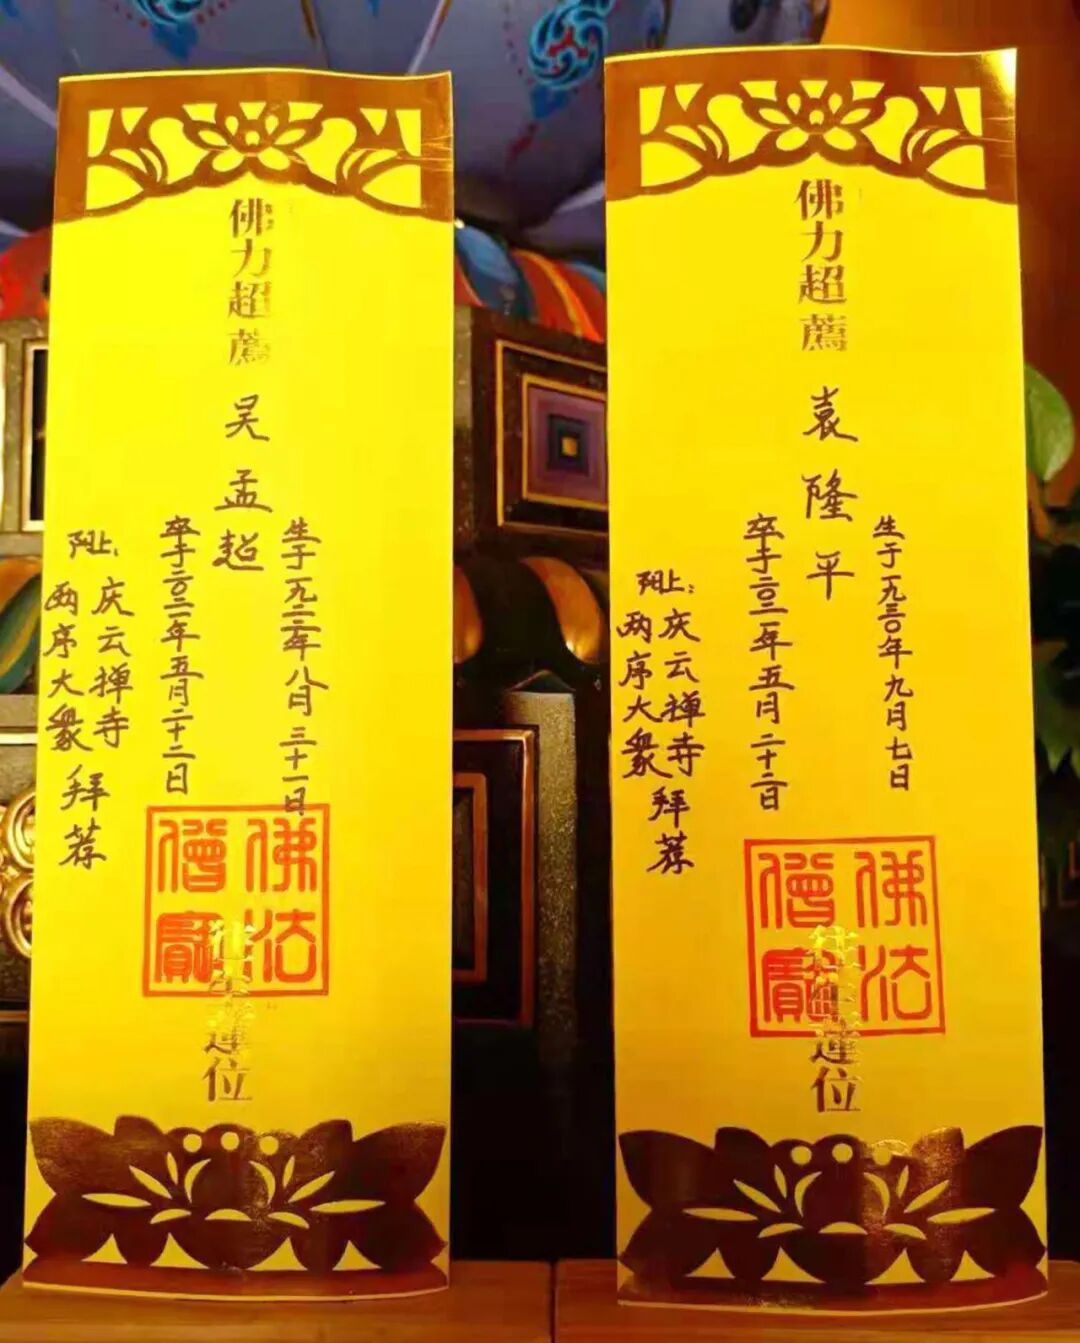 佛力超薦
吴孟超
往生蓮位
生于一九二二年八月三十一日
卒于二〇二一年五月二十二日
阳上:
庆云禅寺
两序大衆
拜荐
佛法
僧寶
佛力超薦
袁隆平
往生蓮位
生于一九三〇年九月七日
卒于二〇二一年五月二十二日
阳上:
庆云禅寺
两序大衆
拜荐
佛法
僧寶